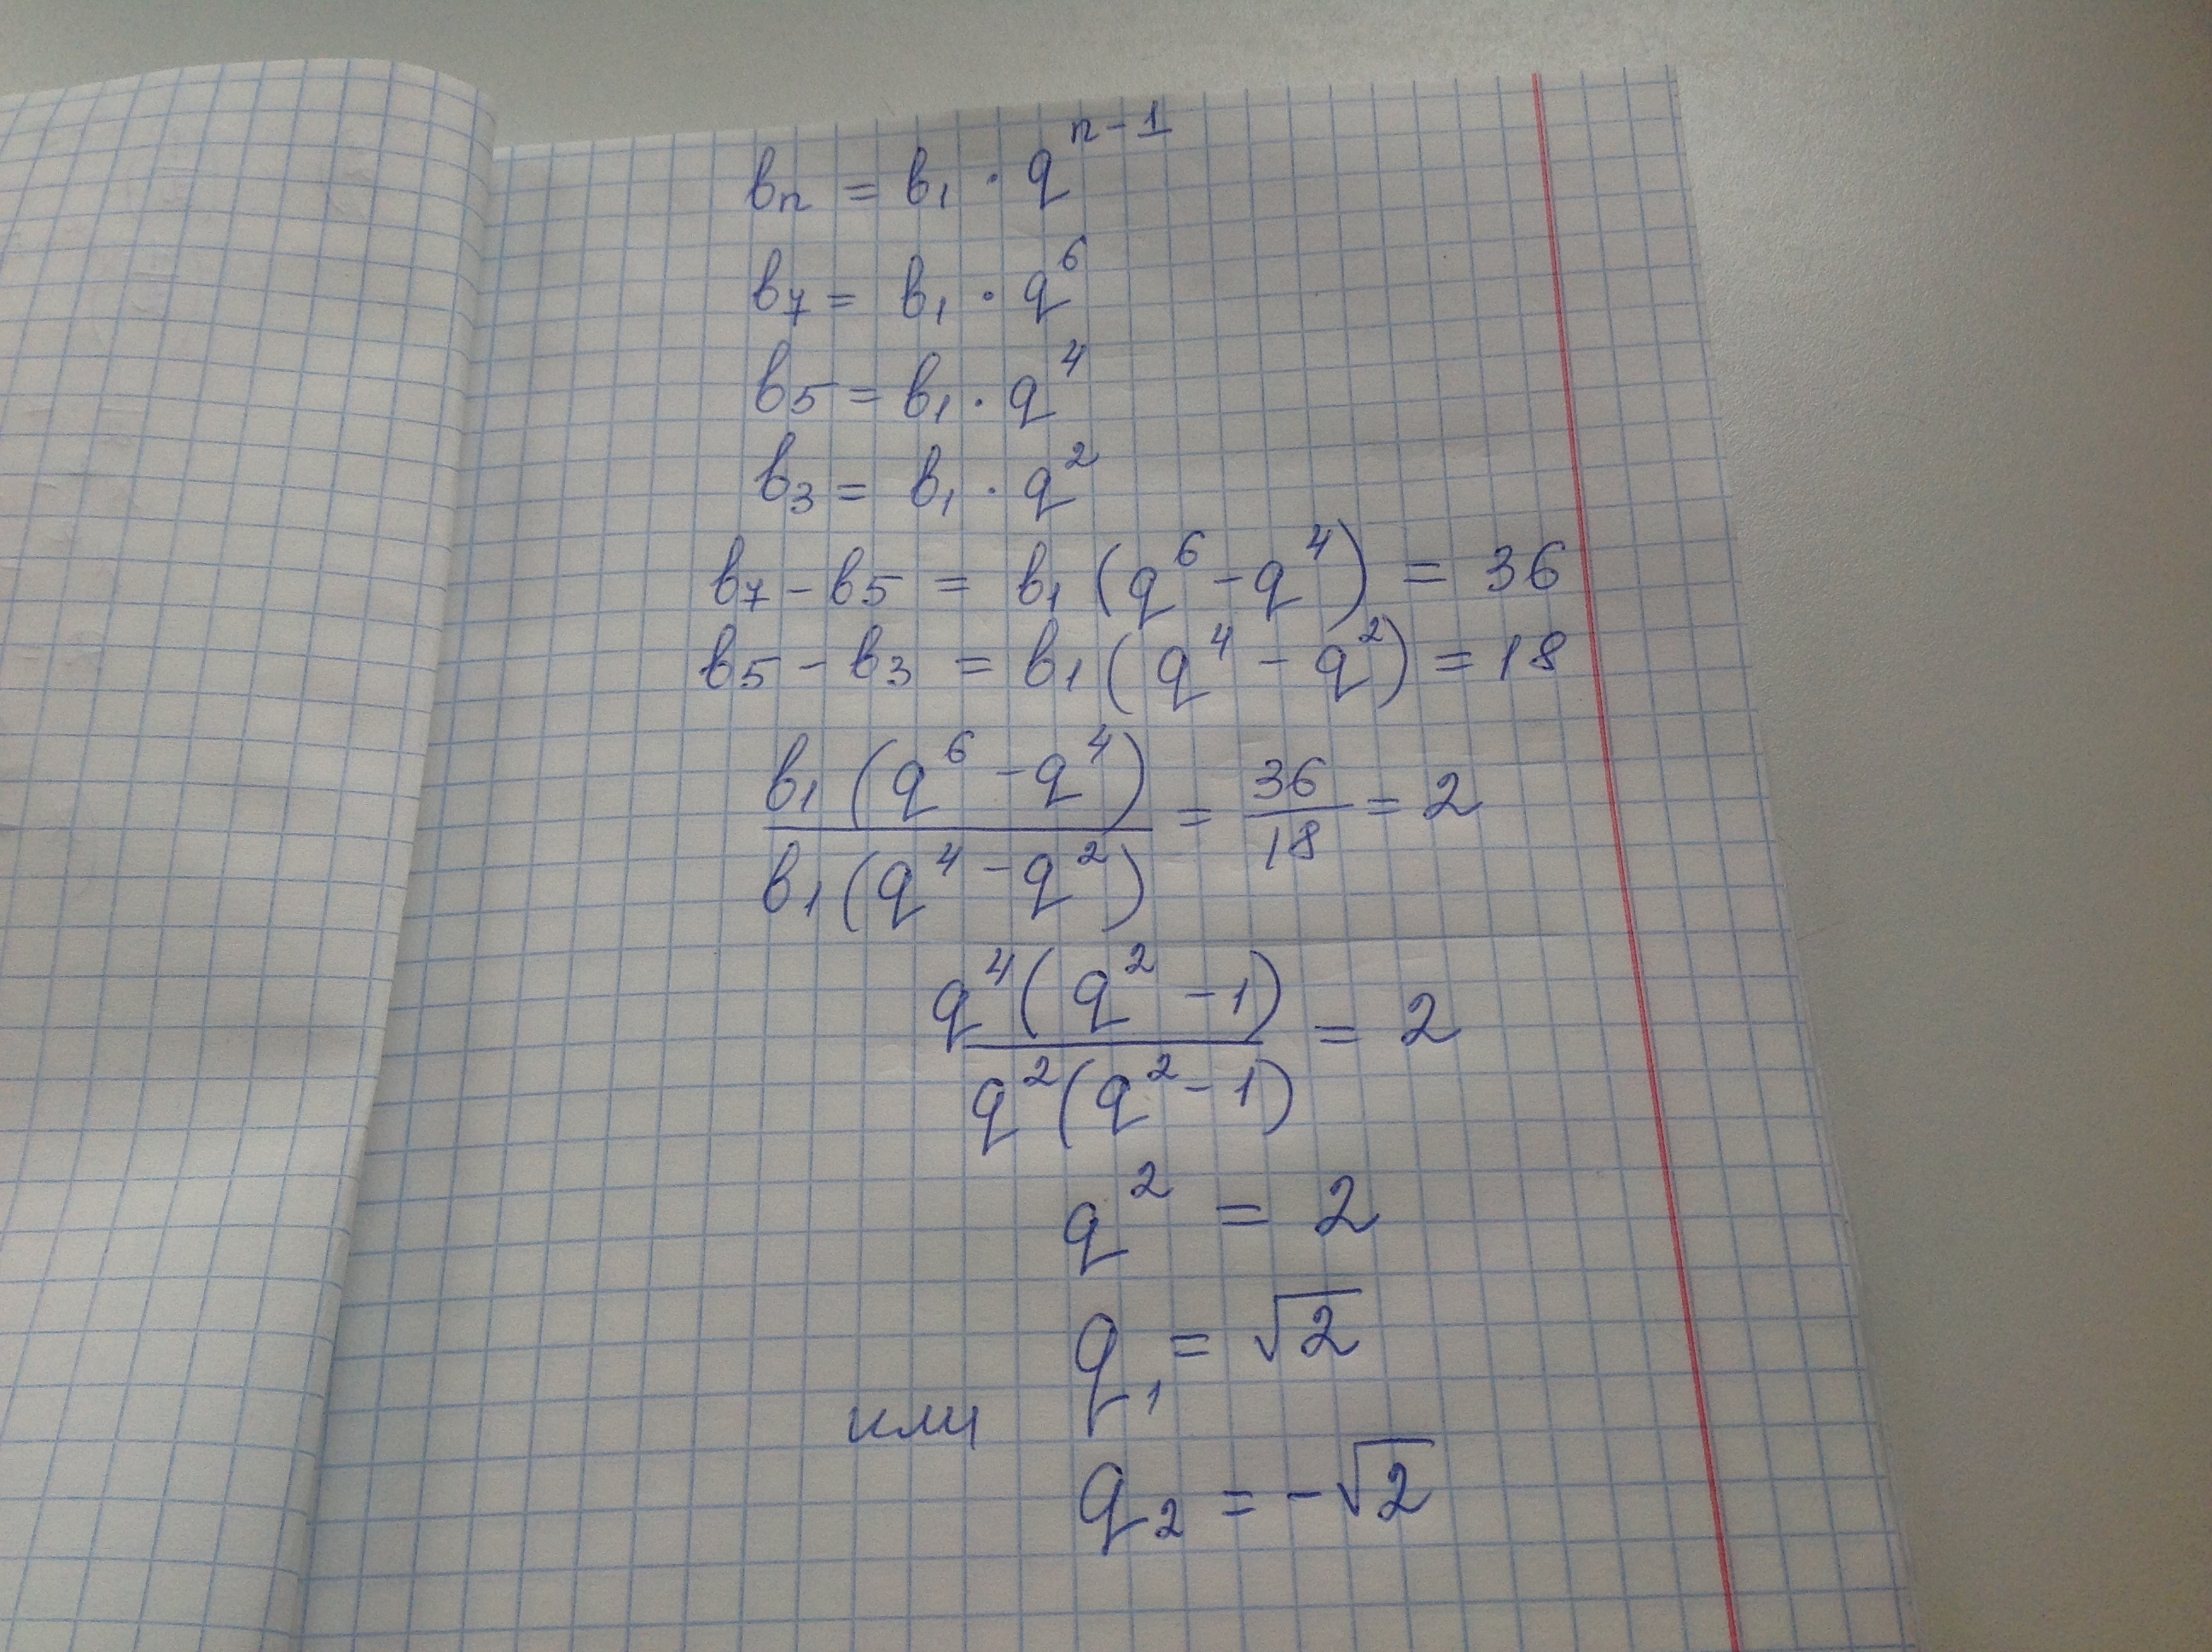 вₙ = в₁ · qⁿ⁻¹
в₇ = в₁ · q⁶
в₅ = в₁ · q⁴
в₃ = в₁ · q²
в₇ - в₅ = в₁ (q⁶ - q⁴) = 36
в₅ - в₃ = в₁ (q⁴ - q²) = 18
в₁ (q⁶ - q⁴) / в₁ (q⁴ - q²) = 36 / 18 = 2
q⁴ (q² - 1) / q² (q² - 1) = 2
q² = 2
q₁ = √2
или
q₂ = -√2